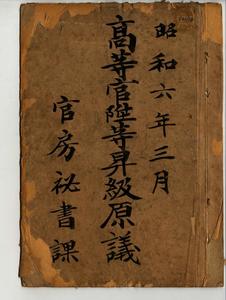 昭和六年三月
高等官陞等昇級原議
官房祕書課